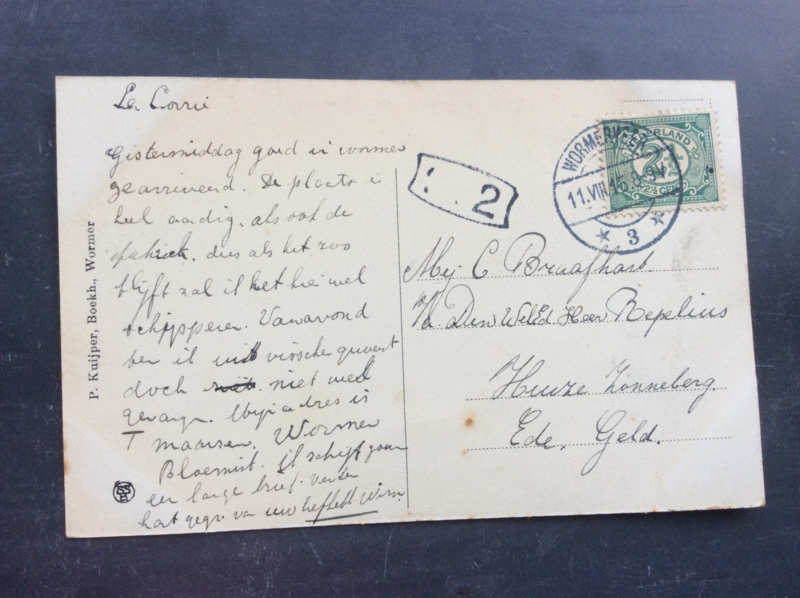 Le Corrie
Gistermiddag goed in wormer
gearriveerd. De plaats i
heel aardig, als ook de
fabriek. dus als het zoo
blijft zal ik het hier wel
schipperen. Vanavond
ben ik uit vissche geweest
doch niet veel
gevange. Mijn adres is
T maarsen. Wormer
Bloemist. ik schrijf gauw
een lange brief. verder
hart gegr. van uw liefhebb Wim.
P. Kuijper, Boekh., Wormer
2
WORMERVEER
11.VIII.15
3
2½ CENT
Mej C Braafhart.
p/a. Den WelEd Heer Repelius
Huize Zonneberg
Ede. Geld.